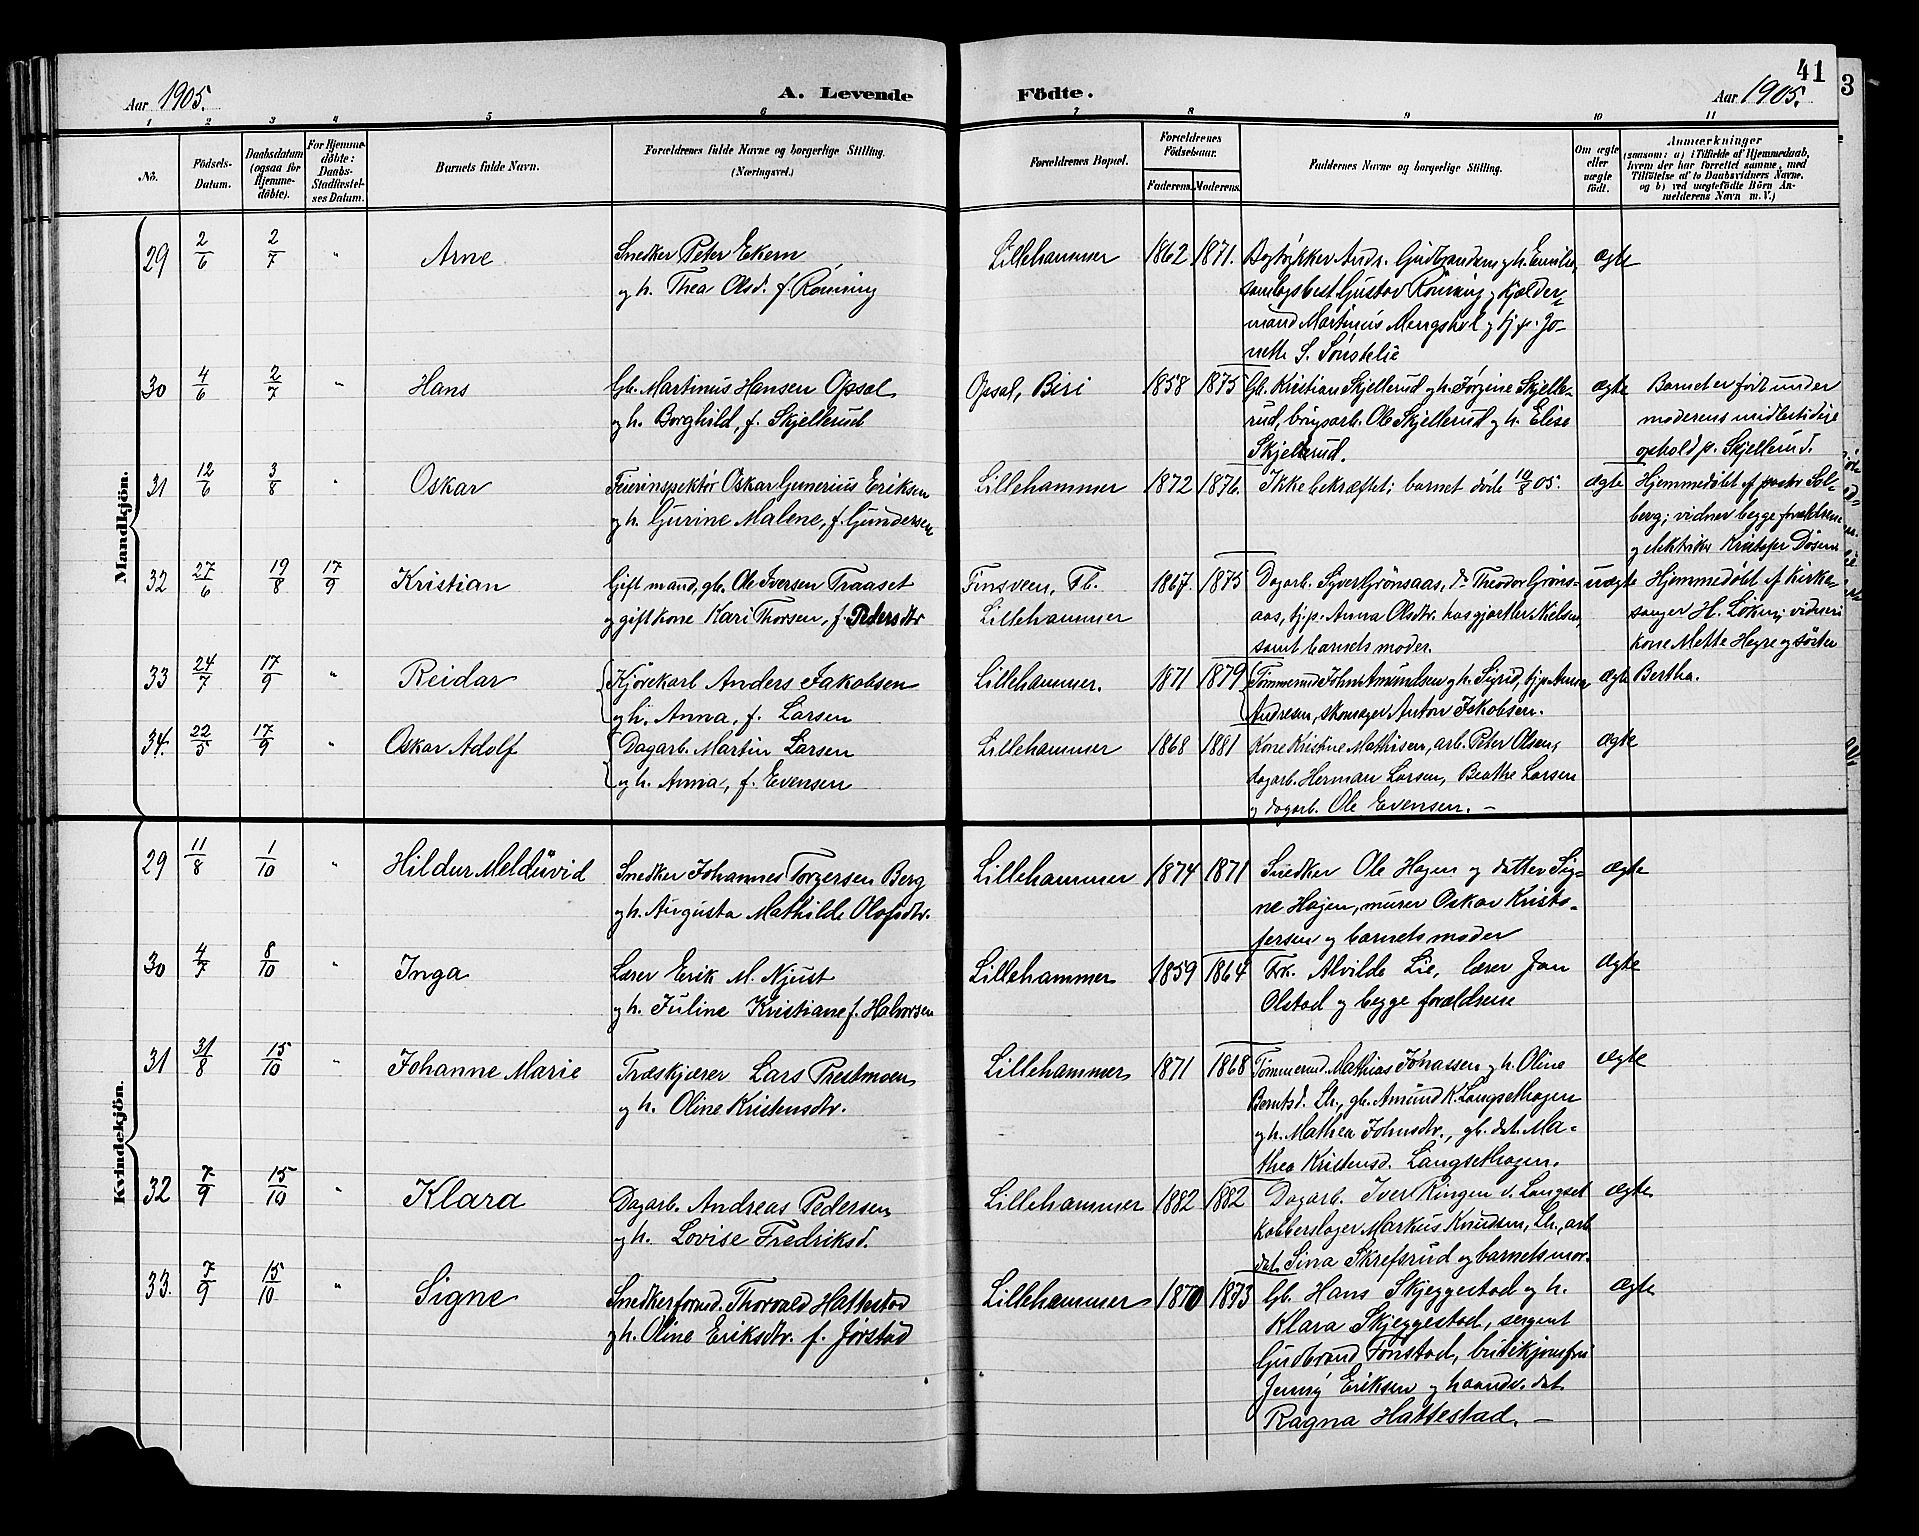 41
3
Aar 1905.
A. Levende
Födte.
Aar 1905.
1 2 3 4 5 6 7 8 9 10 11
No.
Födsels-
Datum.
Daabsdatum
(ogsaa for
Hjemme-
døbte).
For Hjemme-
døbte:
Daabs-
Stadfæstel-
ses Datum.
Barnets fulde Navn.
Forældrenes fulde Navne og borgerlige Stilling.
(Næringsvei.)
Forældrenes Bopæl.
Forældrenes
Födselsaar.
Faderens. Moderens.
Faddernes Navne og borgerlige Stilling.
Om ægte
eller
uægte
født.
Anmærkninger
(saasom: a) i Tilfælde af Hjemmedaab,
hvem der har forrettet samme, med
Tilføielse af to Daabsvidners Navne,
og b) ved uægtefödte Börn An-
melderens Navn m. V.)
Mandkjön.
29 2/6 2/7 " Arne
Snedker Peter Ekern
og h. Thea Olsd. f. Rönning
Lillehammer 1862 1871.
Bogtrykker Andr. Gudbrandsen og h. Emilie,
samlagsbest Gustav Rönning og kjælder-
mand Martinus Mengshol og tj.p. Jo-
nette S. Sönstelie
ægte
30 4/6 2/7 " Hans
Gb. Martinus Hansen Opsal
og h. Borghild, f. Skjellerud
Opsal, Biri 1858 1875
Gb. Kristian Skjellerud og h. Jörgine Skjelle-
rud, brugsarb. Ole Skjellerud og h. Elise
Skjellerud.
ægte
Barnet er født under
moderens midlertidige
ophold p. Skjellerud.
31 12/6 3/8 " Oskar
Feierinspektör Oskar Gunerius Eriksen
og h. Gurine Malene, f. Gundersen
Lillehammer 1872 1876.
Ikke bekræftet; barnet döde 10/8 05.
ægte
Hjemmedöbt af pastor Sol-
berg; vidner begge forældrene
og elektriker Kristofer Dösen
32 27/6 19/8 17/9 Kristian
Gift mand, gb. Ole Iversen Traaset
og gift kone Kari Thorsen, f. Pedersdtr
Finsveen, Fb.
Lillehammer
1867. 1875
Dagarb. Syver Grönsaas, do Theodor Gröns-
aas, tj.p. Anna Olsdtr. hos gjæstler Nielsen,
samt barnets moder.
uægte
Hjemmedöbt af Kirke-
sanger H. Löken; vidner:
kone Mette Heyre og söster
Bertha.
33 24/7 17/9 " Reidar
Kjörekarl Anders Jakobsen
og h. Anna, f. Larsen
Lillehammer. 1871 1879
Tömmermd Johan Amundsen og h. Sigrid, tj.p. Anna
Andresen, skomager Anton Jakobsen.
ægte
34. 22/5 17/9 " Oskar Adolf
Dagarb. Martin Larsen
og h. Anna, f. Evensen
Lillehammer 1868 1881
Kone Kristine Mathisen, arb. Peter Olsen,
dagarb. Herman Larsen, Beathe Larsen
og dagarb. Ole Evensen. —
ægte
Kvindekjön.
29 11/8 1/10 " Hildur Meldüvid
Snedker Johannes Torgersen Berg
og h. Augusta Mathilde Olofsdtr.
Lillehammer 1874 1871
Snedker Ole Hagen og datter Sig-
ne Hagen, murer Oskar Kristo-
fersen og barnets moder
ægte
30 4/7 8/10 " Inga
Lærer Erik M. Njust
og h. Juline Kristiane f. Halvorsen
Lillehammer 1859 1864
Frk. Alvilde Lie, lærer Jon
Olstad og begge forældrene
ægte
31 31/8 15/10 " Johanne Marie
Træskjærer Lars Prestmoen
og h. Oline Kristensdtr.
Lillehammer 1871 1868
Tömmermd. Mathias Johassen og h. Oline
Berntsd. Lh., gb. Amund K. Langsethagen
og h. Mathea Johnsdtr., gb. dat. Ma-
thea Kristensd. Langsethagen.
ægte
32 7/9 15/10 " Klara
Dagarb. Andreas Pedersen
og h. Lovise Fredriksd.
Lillehammer 1882 1882
Dagarb. Iver Ringen v. Langset
kobberslager Markus Knudsen, Lh., arb.
dat. Sina Skrefsrud og barnets mor.
ægte
33. 7/9 15/10 " Signe
Snedkerformd. Thorvald Hattestad
og h. Oline Eriksdtr. f. Jörstad
Lillehammer 1870 1873
Gb. Hans Skjeggestad og h.
Klara Skjeggestad, sergent
Gudbrand Tonstad, butikjomfru
Jenny Eriksen og haandv. dat
Ragna Hattestad. —
ægte